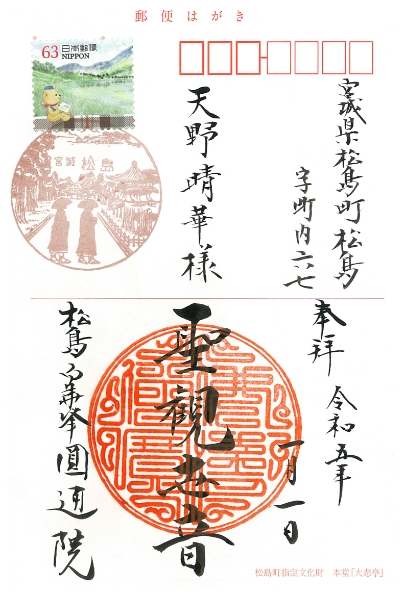 郵便はがき
63 日本郵便
NIPPON
宮城 松島
宮城県松島町松島
字町内六七
天野晴華様
奉拝 令和五年
一月一日
聖観世音
松島
峯圓通院
松島町指定文化財 本堂「大悲亭」